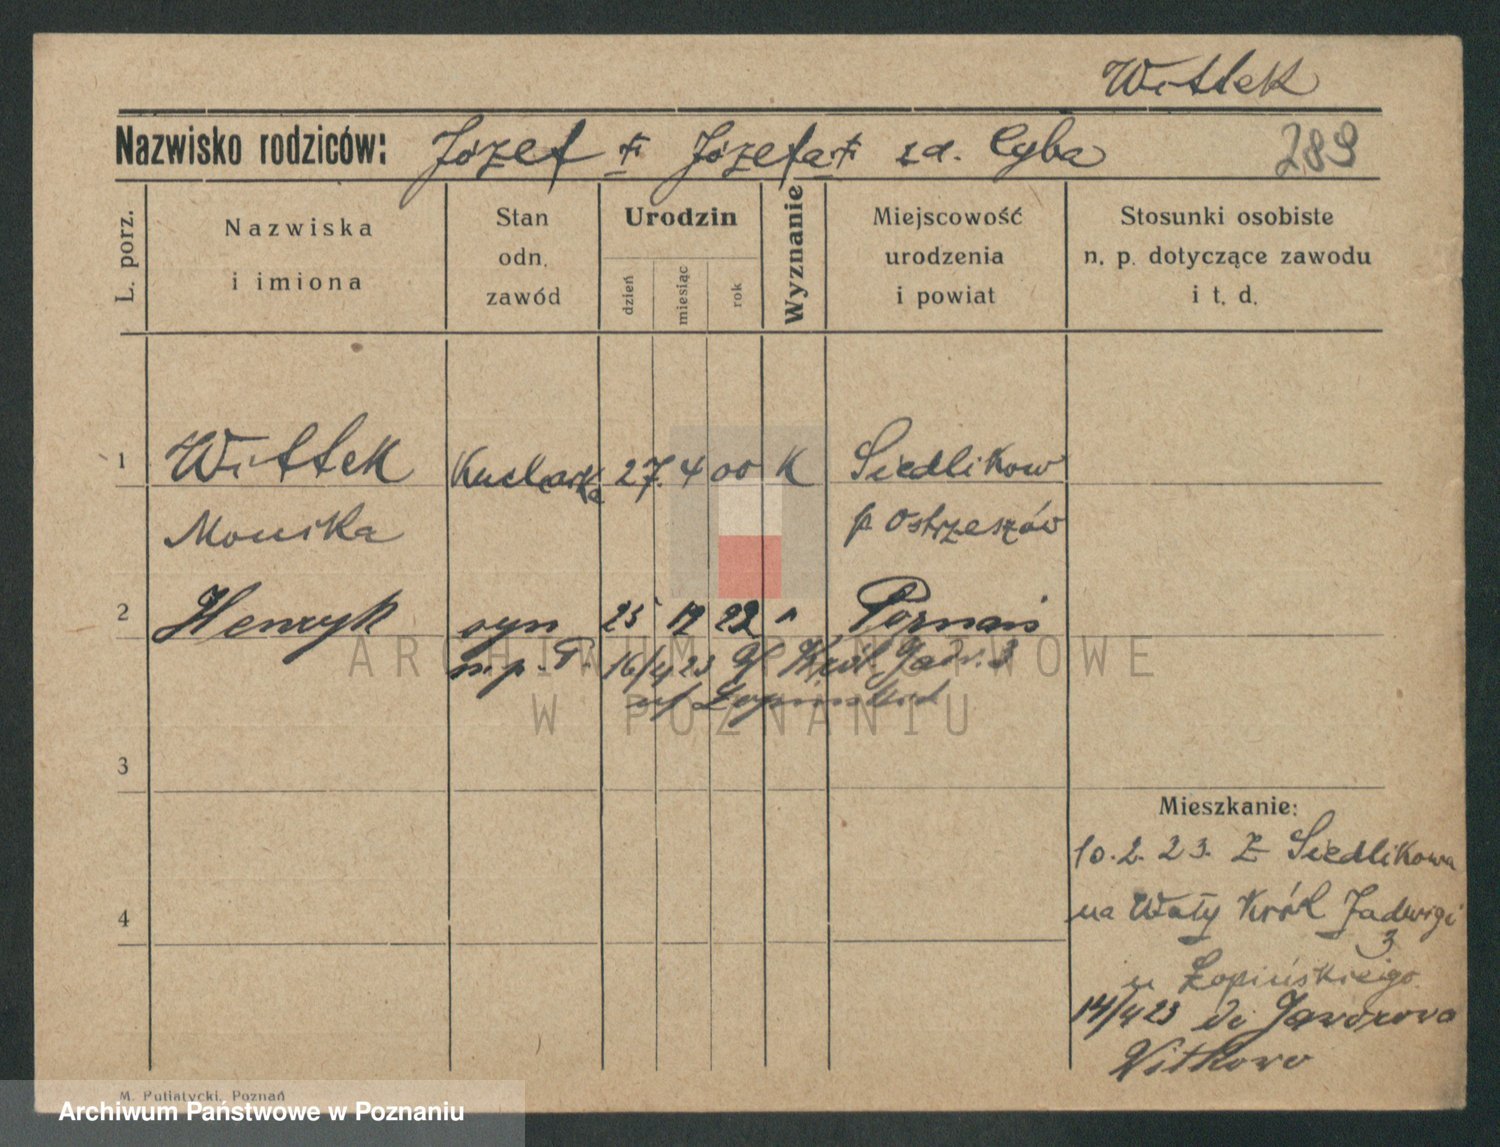 Wittek
Nazwisko rodziców: Józef Józefa zd. Cyba 289
L. porz.
Nazwiska
i imiona
Stan
odn.
zawód
Urodzin
dzień
miesiąc
rok
Wyznanie
Miejscowość
urodzenia
i powiat
Stosunki osobiste
n. p. dotyczące zawodu
i t. d.
1 Wittek Kucharka 27. 4 00 K Siedlikow
Monika p. Ostrzeszów
2 Henryk syn 25 12 22 " Poznań
n. p. P. 16/4 23 Król. Jadw. 3
Łopiński
3
4
Mieszkanie:
10. 2. 23. Z Siedlikowa
na Wały Król Jadwigi
3
u Łopińskiego
14/4 23 do Jaworowa
Witkowo
M. Putiatycki, Poznań
ARCHIWUM PAŃSTWOWE
W POZNANIU
Archiwum Państwowe w Poznaniu